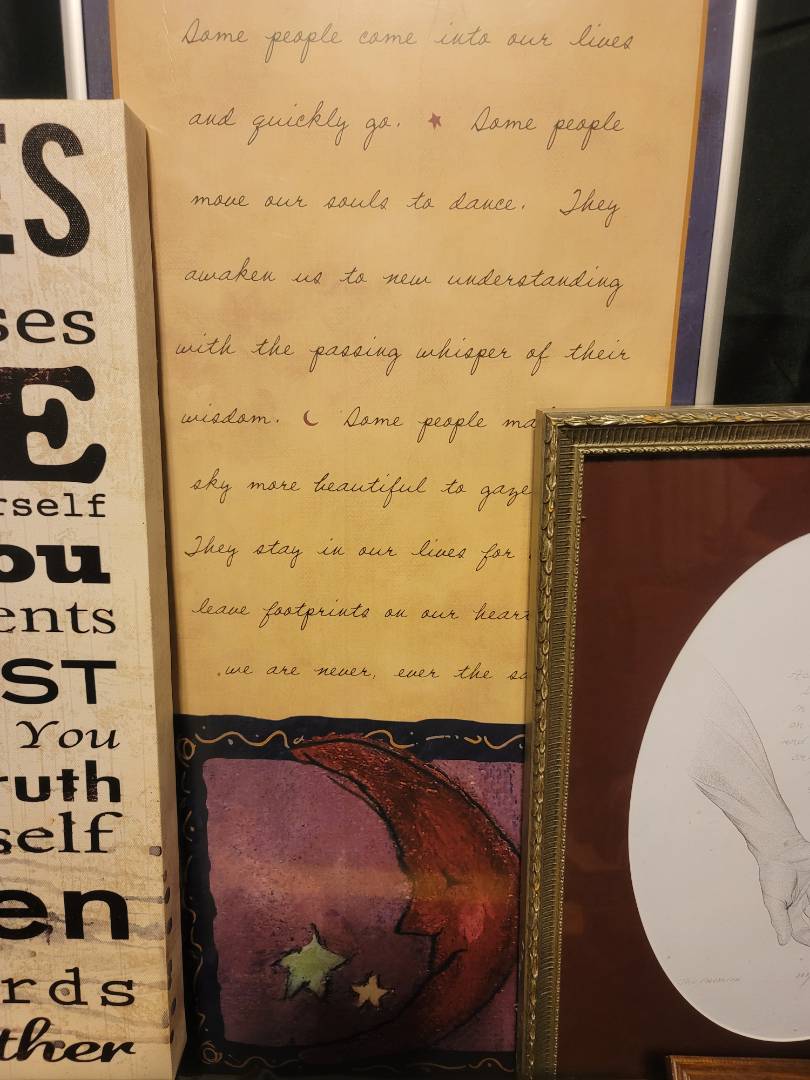 Some people come into our lives
and quickly go. Some people
move our souls to dance. They
awaken us to new understanding
with the passing whisper of their
wisdom. Some people ma
sky more beautiful to gaze
They stay in our lives for
leave footprints on our heart
we are never, ever the sa
ES
ses
E
rself
ou
ents
ST
You
ruth
self
en
rds
ther